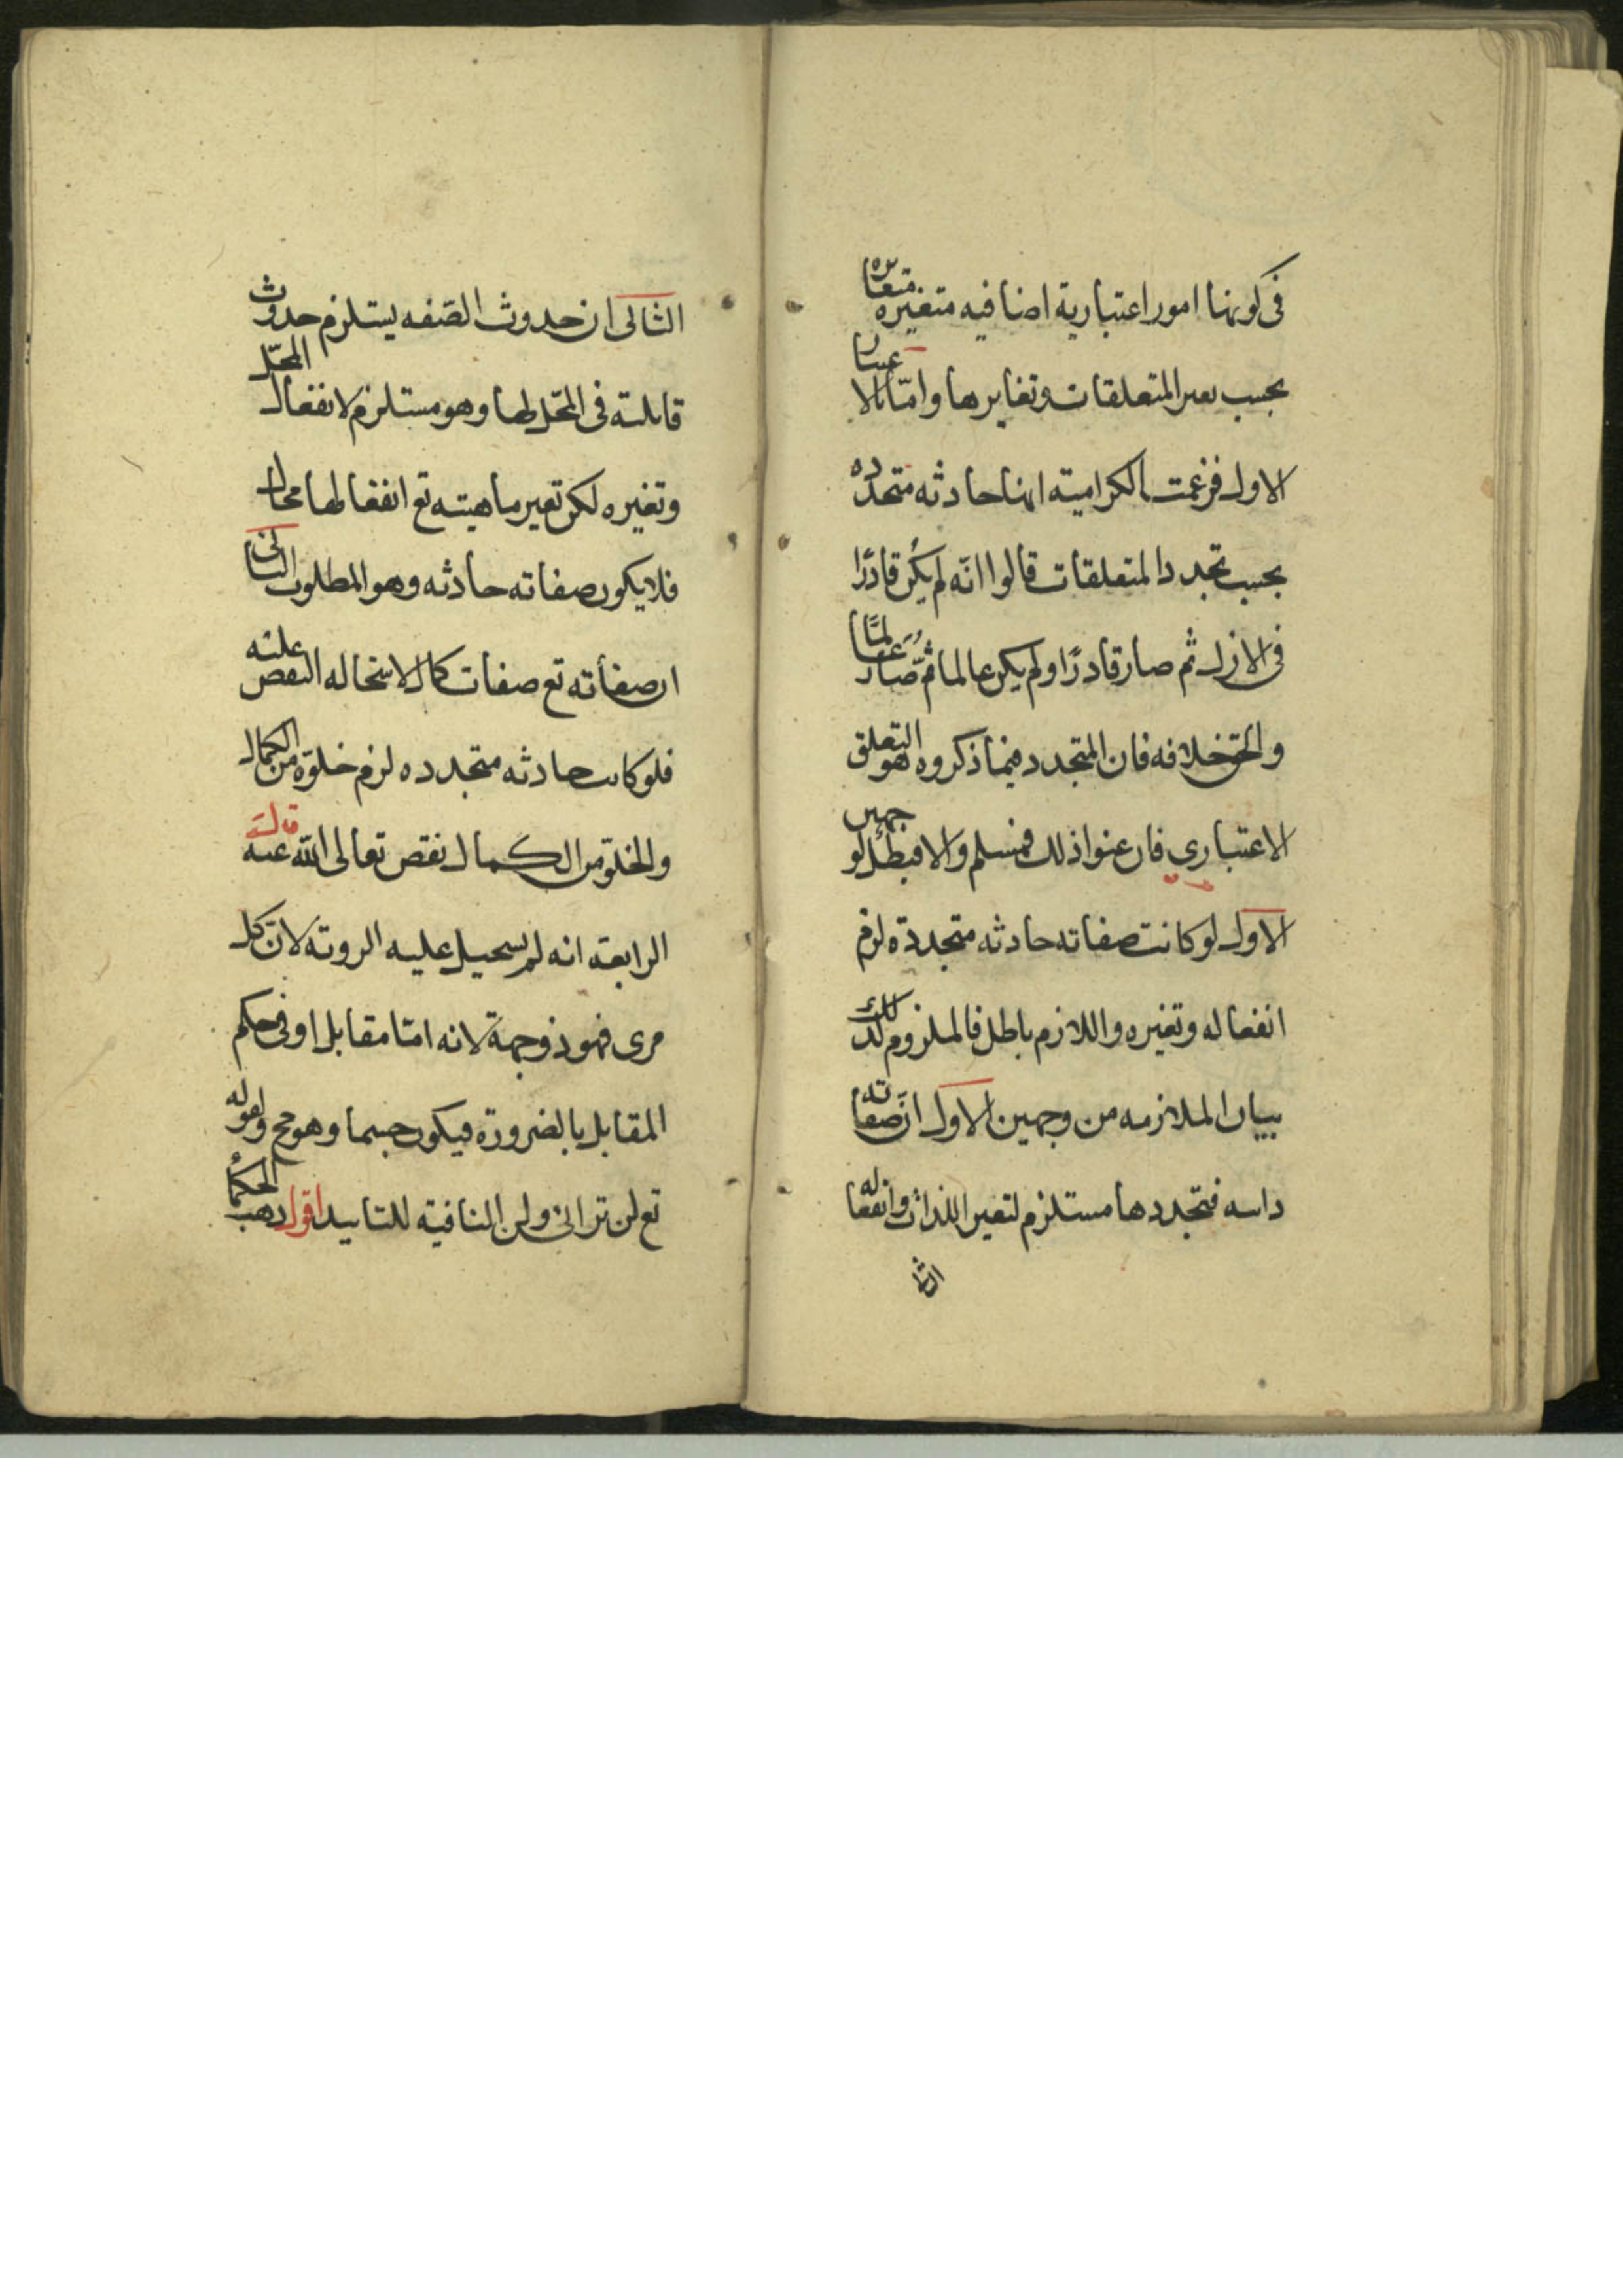 فى كونها امور اعتبارية اضافيه متغيره متغايره
بحسب تغير المتعلقات وتغايرها واما بالاعتبار
الاول فزعمت الكرامية انها حادثه متجدده
بحسب تجدد المتعلقات قالوا انه لم يكن قادرًا
فى الازل ثم صار قادرًا ولم يكن عالما ثم صار عالمًا
والحق خلافه فان المتجدد فيما ذكروه هو التعلق
الاعتبارى فان عنوا ذلك فمسلم والا فبطل لوجهين
الاول لو كانت صفاته حادثه متجددة لزم
انفعاله وتغيره واللازم باطل فالملزوم كذلك
بيان الملازمه من وجهين الاول ان صفاته
داتيه فتجددها مستلزم لتغير الذات وانفعاله
الثا
الثانى ان حدوث الصفه يستلزم حدوث
قابلية فى المحل لها وهو مستلزم لانفعال المحل
وتغيره لكن تغير ماهيته تع انفعالها محال
فلا يكون صفاته حادثه وهو المطلوب الثانى
ان صفاته تع صفات كمال لاستحاله النقص عليه
فلو كانت حادثه متجدده لزم خلوه من الكمال
والخلو من الكمال نقص تعالى الله عنه قال
الرابعة انه لم يستحيل عليه الروية لان كل
مرى فهو ذو جهة لانه اما مقابل او فى حكم
المقابل بالضرورة فيكون جسما وهو مح ولقوله
تع لن ترانى ولن النافية للتابيد اقول ذهب الحكما